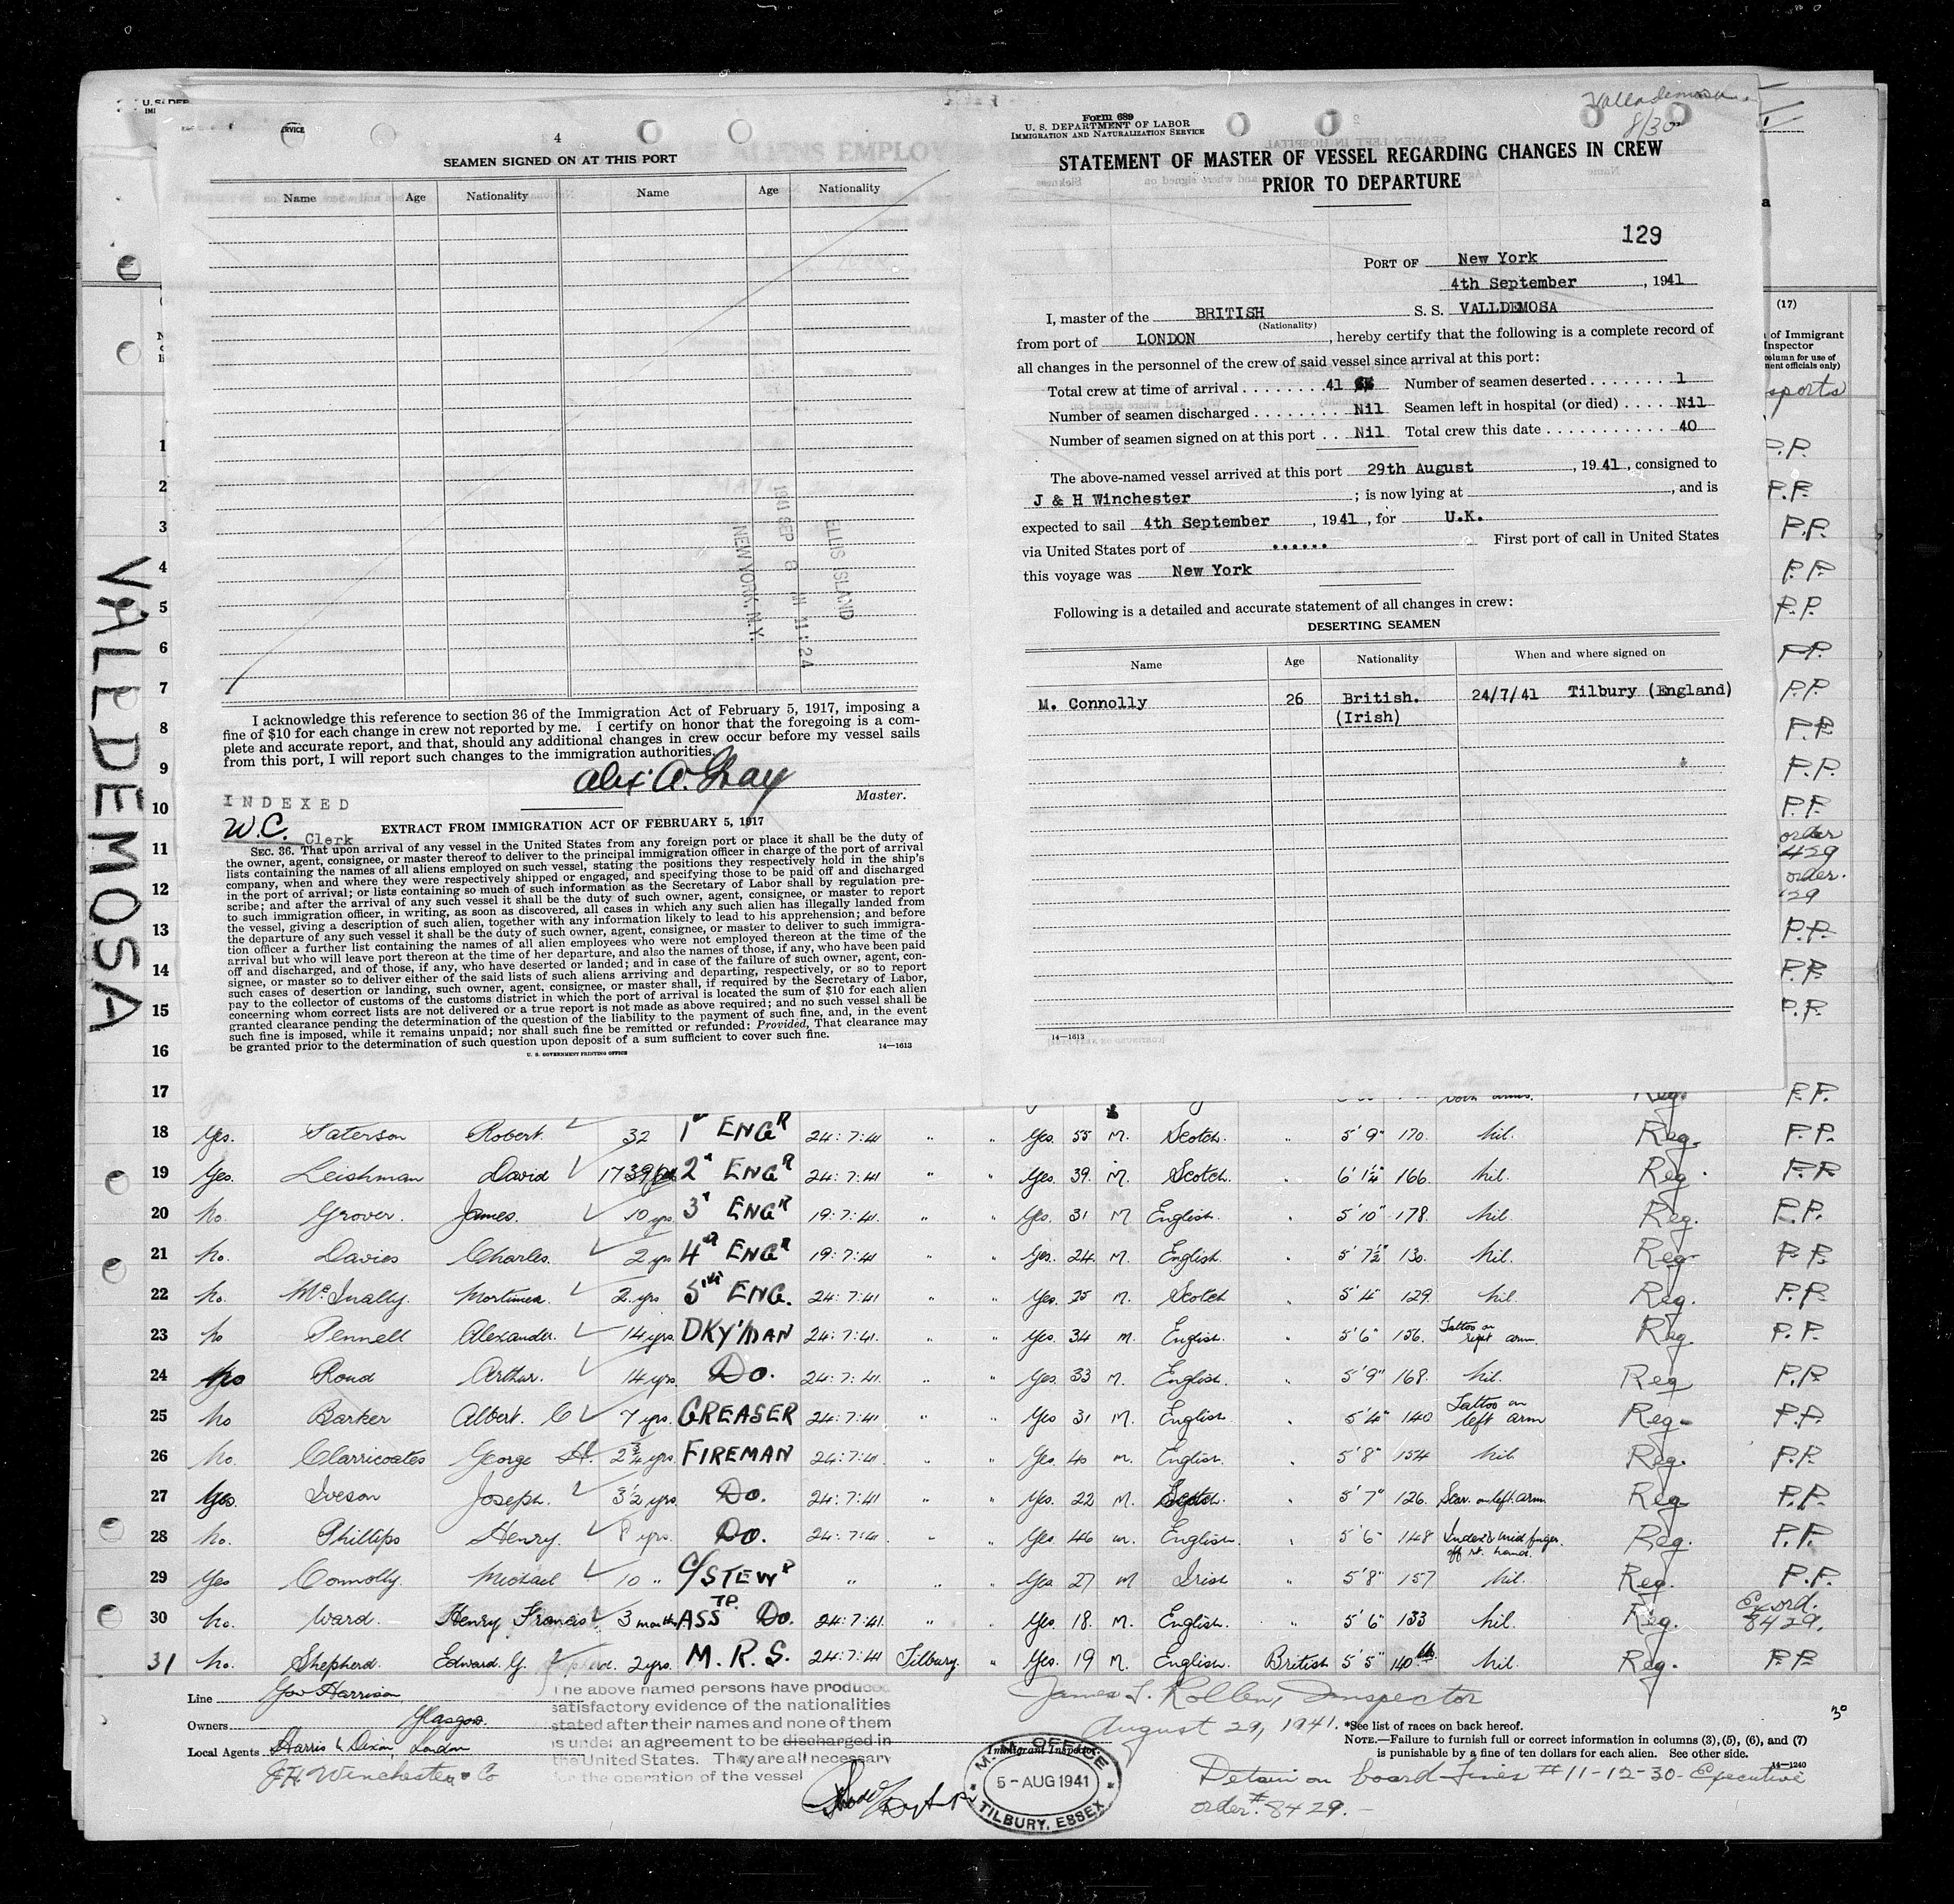 U.S. DEP
IMI
SERVICE
4
SEAMEN SIGNED ON AT THIS PORT
Name Age Nationality Name Age Nationality
1941 SEP 8 AM 11:24
ELLIS ISLAND
NEW YORK, N.Y.
I acknowledge this reference to section 36 of the Immigration Act of February 5, 1917, imposing a
fine of $10 for each change in crew not reported by me. I certify on honor that the foregoing is a com-
plete and accurate report, and that, should any additional changes in crew occur before my vessel sails
from this port, I will report such changes to the immigration authorities.
Alex A. Gray
Master.
INDEXED
W.C. Clerk
EXTRACT FROM IMMIGRATION ACT OF FEBRUARY 5, 1917
SEC. 36. That upon arrival of any vessel in the United States from any foreign port or place it shall be the duty of
the owner, agent, consignee, or master thereof to deliver to the principal immigration officer in charge of the port of arrival
lists containing the names of all aliens employed on such vessel, stating the positions they respectively hold in the ship's
company, when and where they were respectively shipped or engaged, and specifying those to be paid off and discharged
in the port of arrival; or lists containing so much of such information as the Secretary of Labor shall by regulation pre-
scribe; and after the arrival of any such vessel it shall be the duty of such owner, agent, consignee, or master to report
to such immigration officer, in writing, as soon as discovered, all cases in which any such alien has illegally landed from
the vessel, giving a description of such alien, together with any information likely to lead to his apprehension; and before
the departure of any such vessel it shall be the duty of such owner, agent, consignee, or master to deliver to such immigra-
tion officer a further list containing the names of all alien employees who were not employed thereon at the time of the
arrival but who will leave port thereon at the time of her departure, and also the names of those, if any, who have been paid
off and discharged, and of those, if any, who have deserted or landed; and in case of the failure of such owner, agent, con-
signee, or master so to deliver either of the said lists of such aliens arriving and departing, respectively, or so to report
such cases of desertion or landing, such owner, agent, consignee, or master shall, if required by the Secretary of Labor,
pay to the collector of customs of the customs district in which the port of arrival is located the sum of $10 for each alien
concerning whom correct lists are not delivered or a true report is not made as above required; and no such vessel shall be
granted clearance pending the determination of the question of the liability to the payment of such fine, and, in the event
such fine is imposed, while it remains unpaid; nor shall such fine be remitted or refunded: Provided, That clearance may
be granted prior to the determination of such question upon deposit of a sum sufficient to cover such fine.
U. S. GOVERNMENT PRINTING OFFICE 14—1613
Valldemosa
8/30
Form 689
U. S. DEPARTMENT OF LABOR
IMMIGRATION AND NATURALIZATION SERVICE
STATEMENT OF MASTER OF VESSEL REGARDING CHANGES IN CREW
PRIOR TO DEPARTURE
129
PORT OF New York
4th September, 1941
I, master of the BRITISH S. S. VALLDEMOSA
(Nationality)
from port of LONDON, hereby certify that the following is a complete record of
all changes in the personnel of the crew of said vessel since arrival at this port:
Total crew at time of arrival 41 Number of seamen deserted 1
Number of seamen discharged Nil Seamen left in hospital (or died) Nil
Number of seamen signed on at this port Nil Total crew this date 40
The above-named vessel arrived at this port 29th August, 1941, consigned to
J & H Winchester; is now lying at , and is
expected to sail 4th September, 1941, for U.K.
via United States port of ...... First port of call in United States
this voyage was New York
Following is a detailed and accurate statement of all changes in crew:
DESERTING SEAMEN
Name Age Nationality When and where signed on
M. Connolly 26 British. 24/7/41 Tilbury (England)
(Irish)
14—1613
(17)
of Immigrant
Inspector
column for use of
ment officials only)
sports
VALLDEMOSA
1 P.P.
2 P.P.
3 P.P.
4 P.P.
5 P.P.
6 P.P.
7 P.P.
8 P.P.
9 P.P.
10 P.P.
11 order 429
12 order. 29
13 P.P.
14 P.P.
15 P.P.
16
17 Reg. P.P.
18 Yes. Paterson Robert. 32 1st ENGR 24:7:41 " " Yes. 55 M. Scotch. " 5' 9" 170. Nil. Reg. P.P.
19 Yes. Leishman David 17 2nd ENGR 24:7:41 " Yes. 39. M. Scotch. " 6' 1½" 166. Nil. Reg. P.P.
20 No. Grover. James. 10 yrs. 3rd ENGR 19:7:41. " " Yes. 31 M English. " 5' 10" 178. Nil. Reg. P.P.
21 No. Davies Charles. 2 yrs 4th ENGR 19:7:41 " " Yes. 24. M. English. " 5' 7½" 130. Nil. Reg. P.P.
22 No. McInally. Mortimer. 2 yrs 5th ENG. 24:7:41 " " Yes. 25 M. Scotch " 5' 4" 129. Nil. Reg. P.P.
23 No Pennell Alexander. 14 yrs. DKY'MAN 24:7:41. " " Yes. 34 M. English. " 5' 6" 156. Tattoo on right arm. Reg. P.P.
24 No Rond Arthur. 14 yrs. Do. 24:7:41. " " Yes. 33 M. English. " 5' 9" 168. Nil. Reg P.P.
25 No Barker Albert. C 7 yrs. GREASER 24:7:41 " " Yes 31 M. English. " 5' 4" 140 Tattoo on left arm Reg. P.P.
26 No. Clarricoates George H. 2¾ yrs. FIREMAN 24:7:41. " " Yes. 40 M. English. " 5' 8" 154 Nil. Reg. P.P.
27 Yes. Iveson Joseph. 3½ yrs. Do. 24:7:41 " " Yes. 22 M. " 5' 7" 126. Scar on left arm. Reg P.P.
28 No. Phillips Henry. 8 yrs. Do. 24:7:41 " " Yes. 46 M. English. " 5' 6" 148 Index & mid finger off rt. hand. Reg. P.P.
29 Yes Connolly. Michael 10 " C/STEWD " " " Yes 27 M Irish " 5' 8" 157 Nil. Reg. P.P.
30 No. Ward. Henry Francis 3 month ASSTD Do. 24:7:41. " " Yes. 18. M. English. " 5' 6" 133 Nil. Reg. Ex ord. 8429.
31 No. Shepherd. Edward. G. 2 yrs. M. R. S. 24:7:41 Tilbury. " Yes. 19 M. English. British 5' 5" 140 lb. Nil. Reg. P.P.
Line Gov Harrison
Owners Glasgow.
Local Agents Harris & Dixon, London
J H Winchester & Co
The above named persons have produced
satisfactory evidence of the nationalities
stated after their names and none of them
is under an agreement to be discharged in
the United States. They are all necessary
for the operation of the vessel
M. M. OFFICE
5 - AUG 1941
TILBURY. ESSEX
James L. Rollen, Inspector
August 29, 1941.
Immigrant Inspector.
*See list of races on back hereof.
NOTE.—Failure to furnish full or correct information in columns (3), (5), (6), and (7)
is punishable by a fine of ten dollars for each alien. See other side.
14—1240
30
Detain on board Lines # 11-12-30- Executive
order # 8429.-